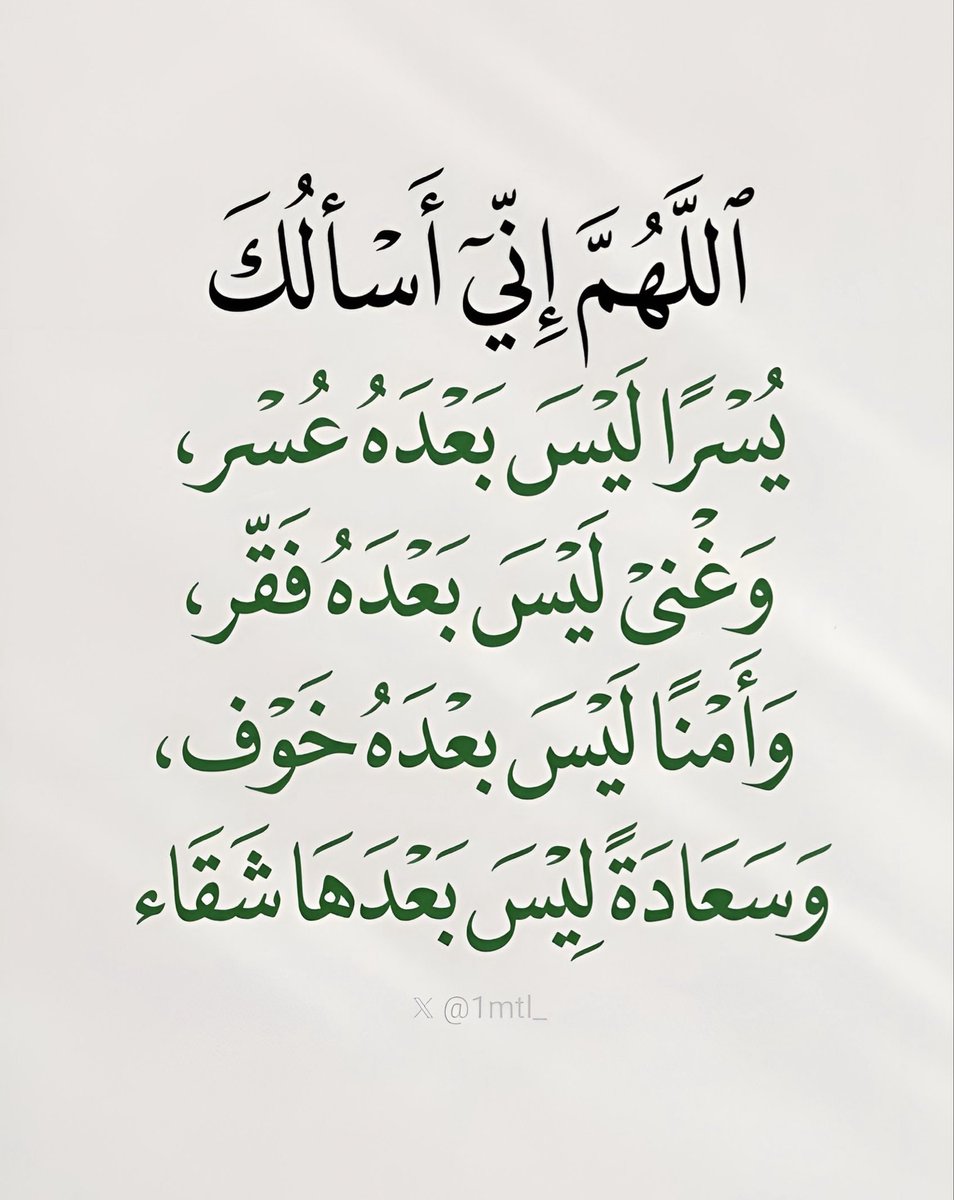 ٱللَّهُمَّ إِنِّيٓ أَسْألُكَ
يُسْرًا لَيْسَ بَعْدَهُ عُسْر،
وَغْنىْ لَيْسَ بَعْدَهُ فَقّر،
وَأَمْنًا لَيْسَ بعْدَهُ خَوْف،
وَسَعَادَةً لِيْسَ بَعْدَهَا شَقَاء
X @1mtl_